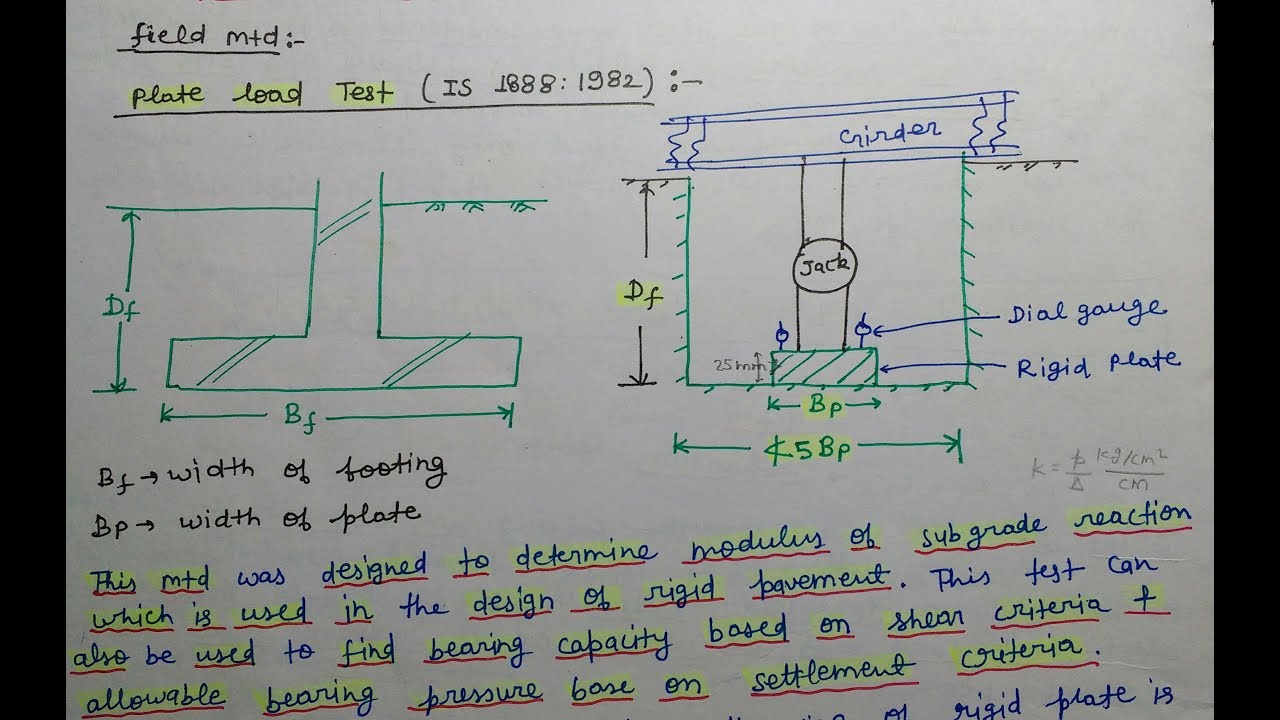 field mtd:-
Plate load Test (IS 1888:1982) :-
Girder
Jack
Df
Df
Dial gauge
25mm
Rigid plate
Bp
Bf
≮5Bp
k = p/Δ kg/cm²/cm
Bf → width of footing
Bp → width of plate
This mtd was designed to determine modulus of subgrade reaction
which is used in the design of rigid pavement. This test can
also be used to find bearing capacity based on shear criteria &
allowable bearing pressure base on settlement criteria.
of rigid plate is